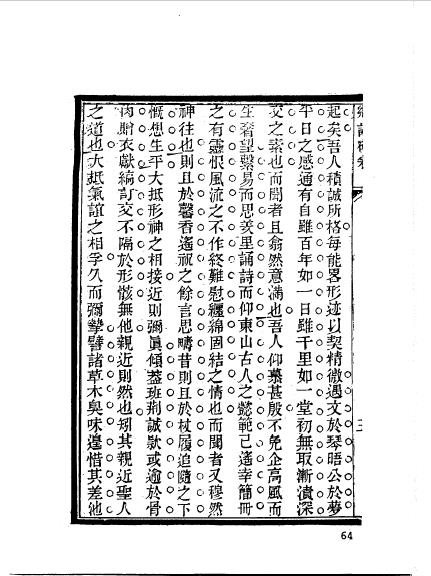 起矣吾人積誠所格每能畧形迹以契精微遇文於琴晤公於夢
平日之感通有自雖百年如一日雖千里如一堂初無取漸漬深
交之素也而聞者且翕然意滿也吾人仰慕甚殷不免企高風而
生奢望繫易而思羑里誦詩而仰東山古人之懿範已遙幸簡冊
之有靈恨風流之不作終難慰纏綿固結之情也而聞者又穆然
神往也則且於馨香遙祝之餘言思疇昔則且於杖履追隨之下
慨想生平大抵形神之相接近則彌眞傾葢班荆誠欵或逾於骨
肉贈衣獻縞訂交不隔於形骸無他親近則然也矧其親近聖人
之道也大抵氣誼之相孚久而彌摯譬諸草木臭味遑惜其差池
64